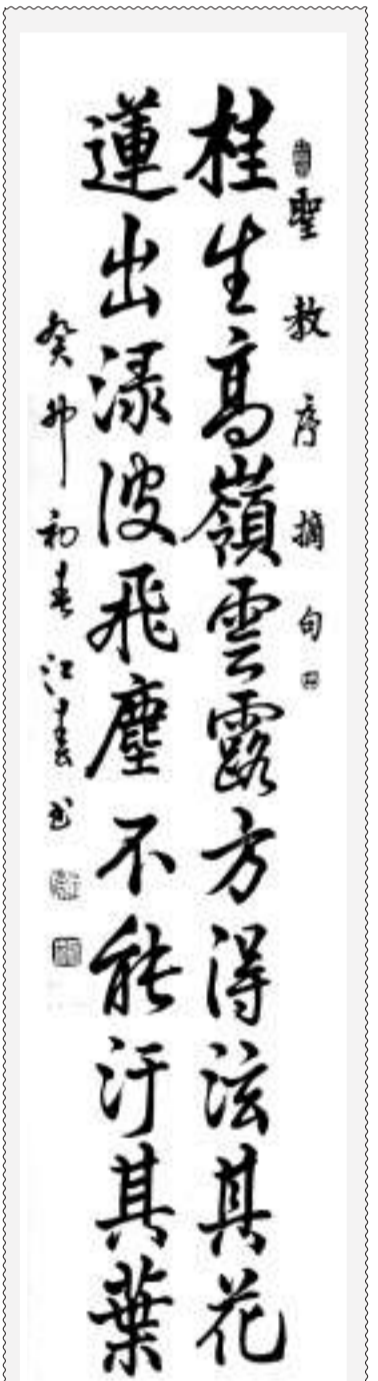 聖教序摘句
桂生高嶺雲露方得泫其花
蓮出渌波飛塵不能汙其葉
癸卯初春江春书